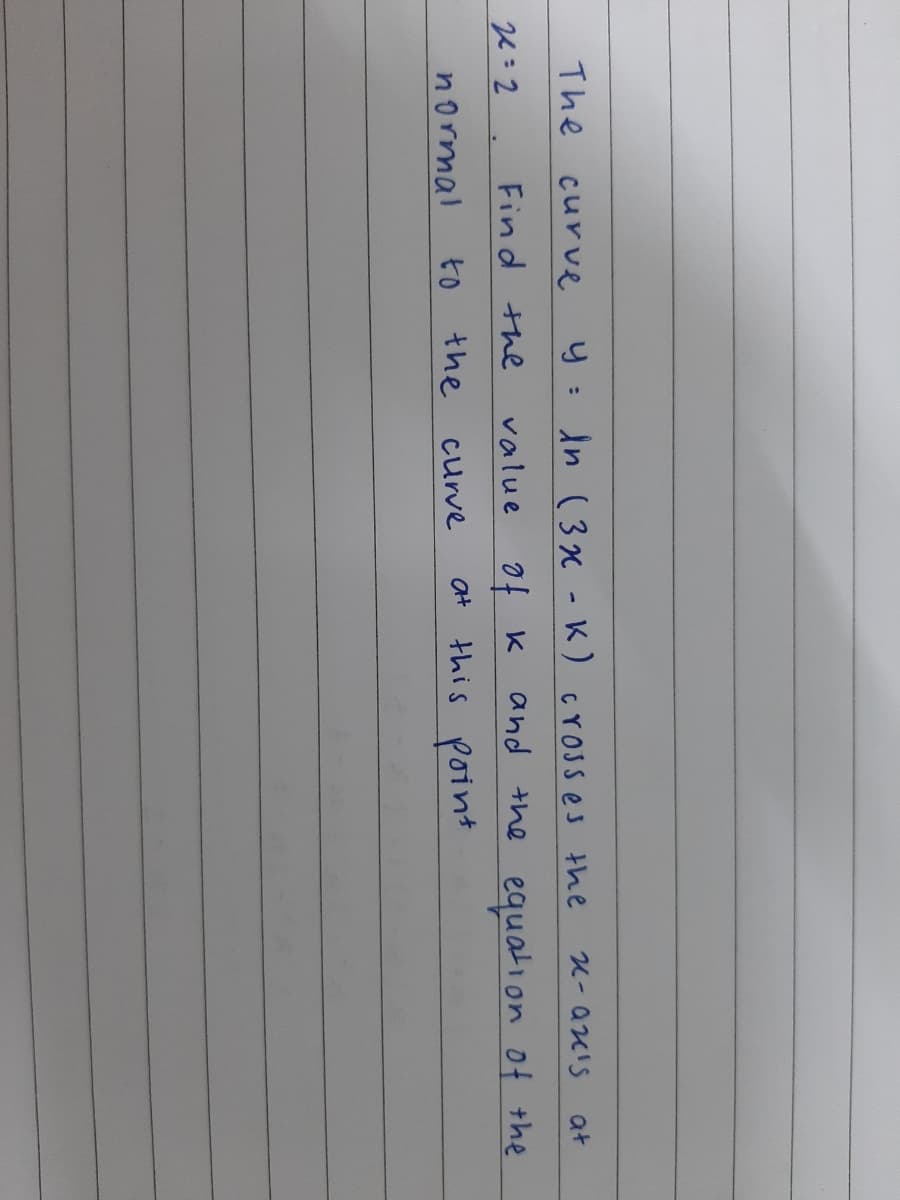 The curve y = ln (3x - k) crosses the x-axis at
x = 2 . Find the value of k and the equation of the
normal to the curve at this point